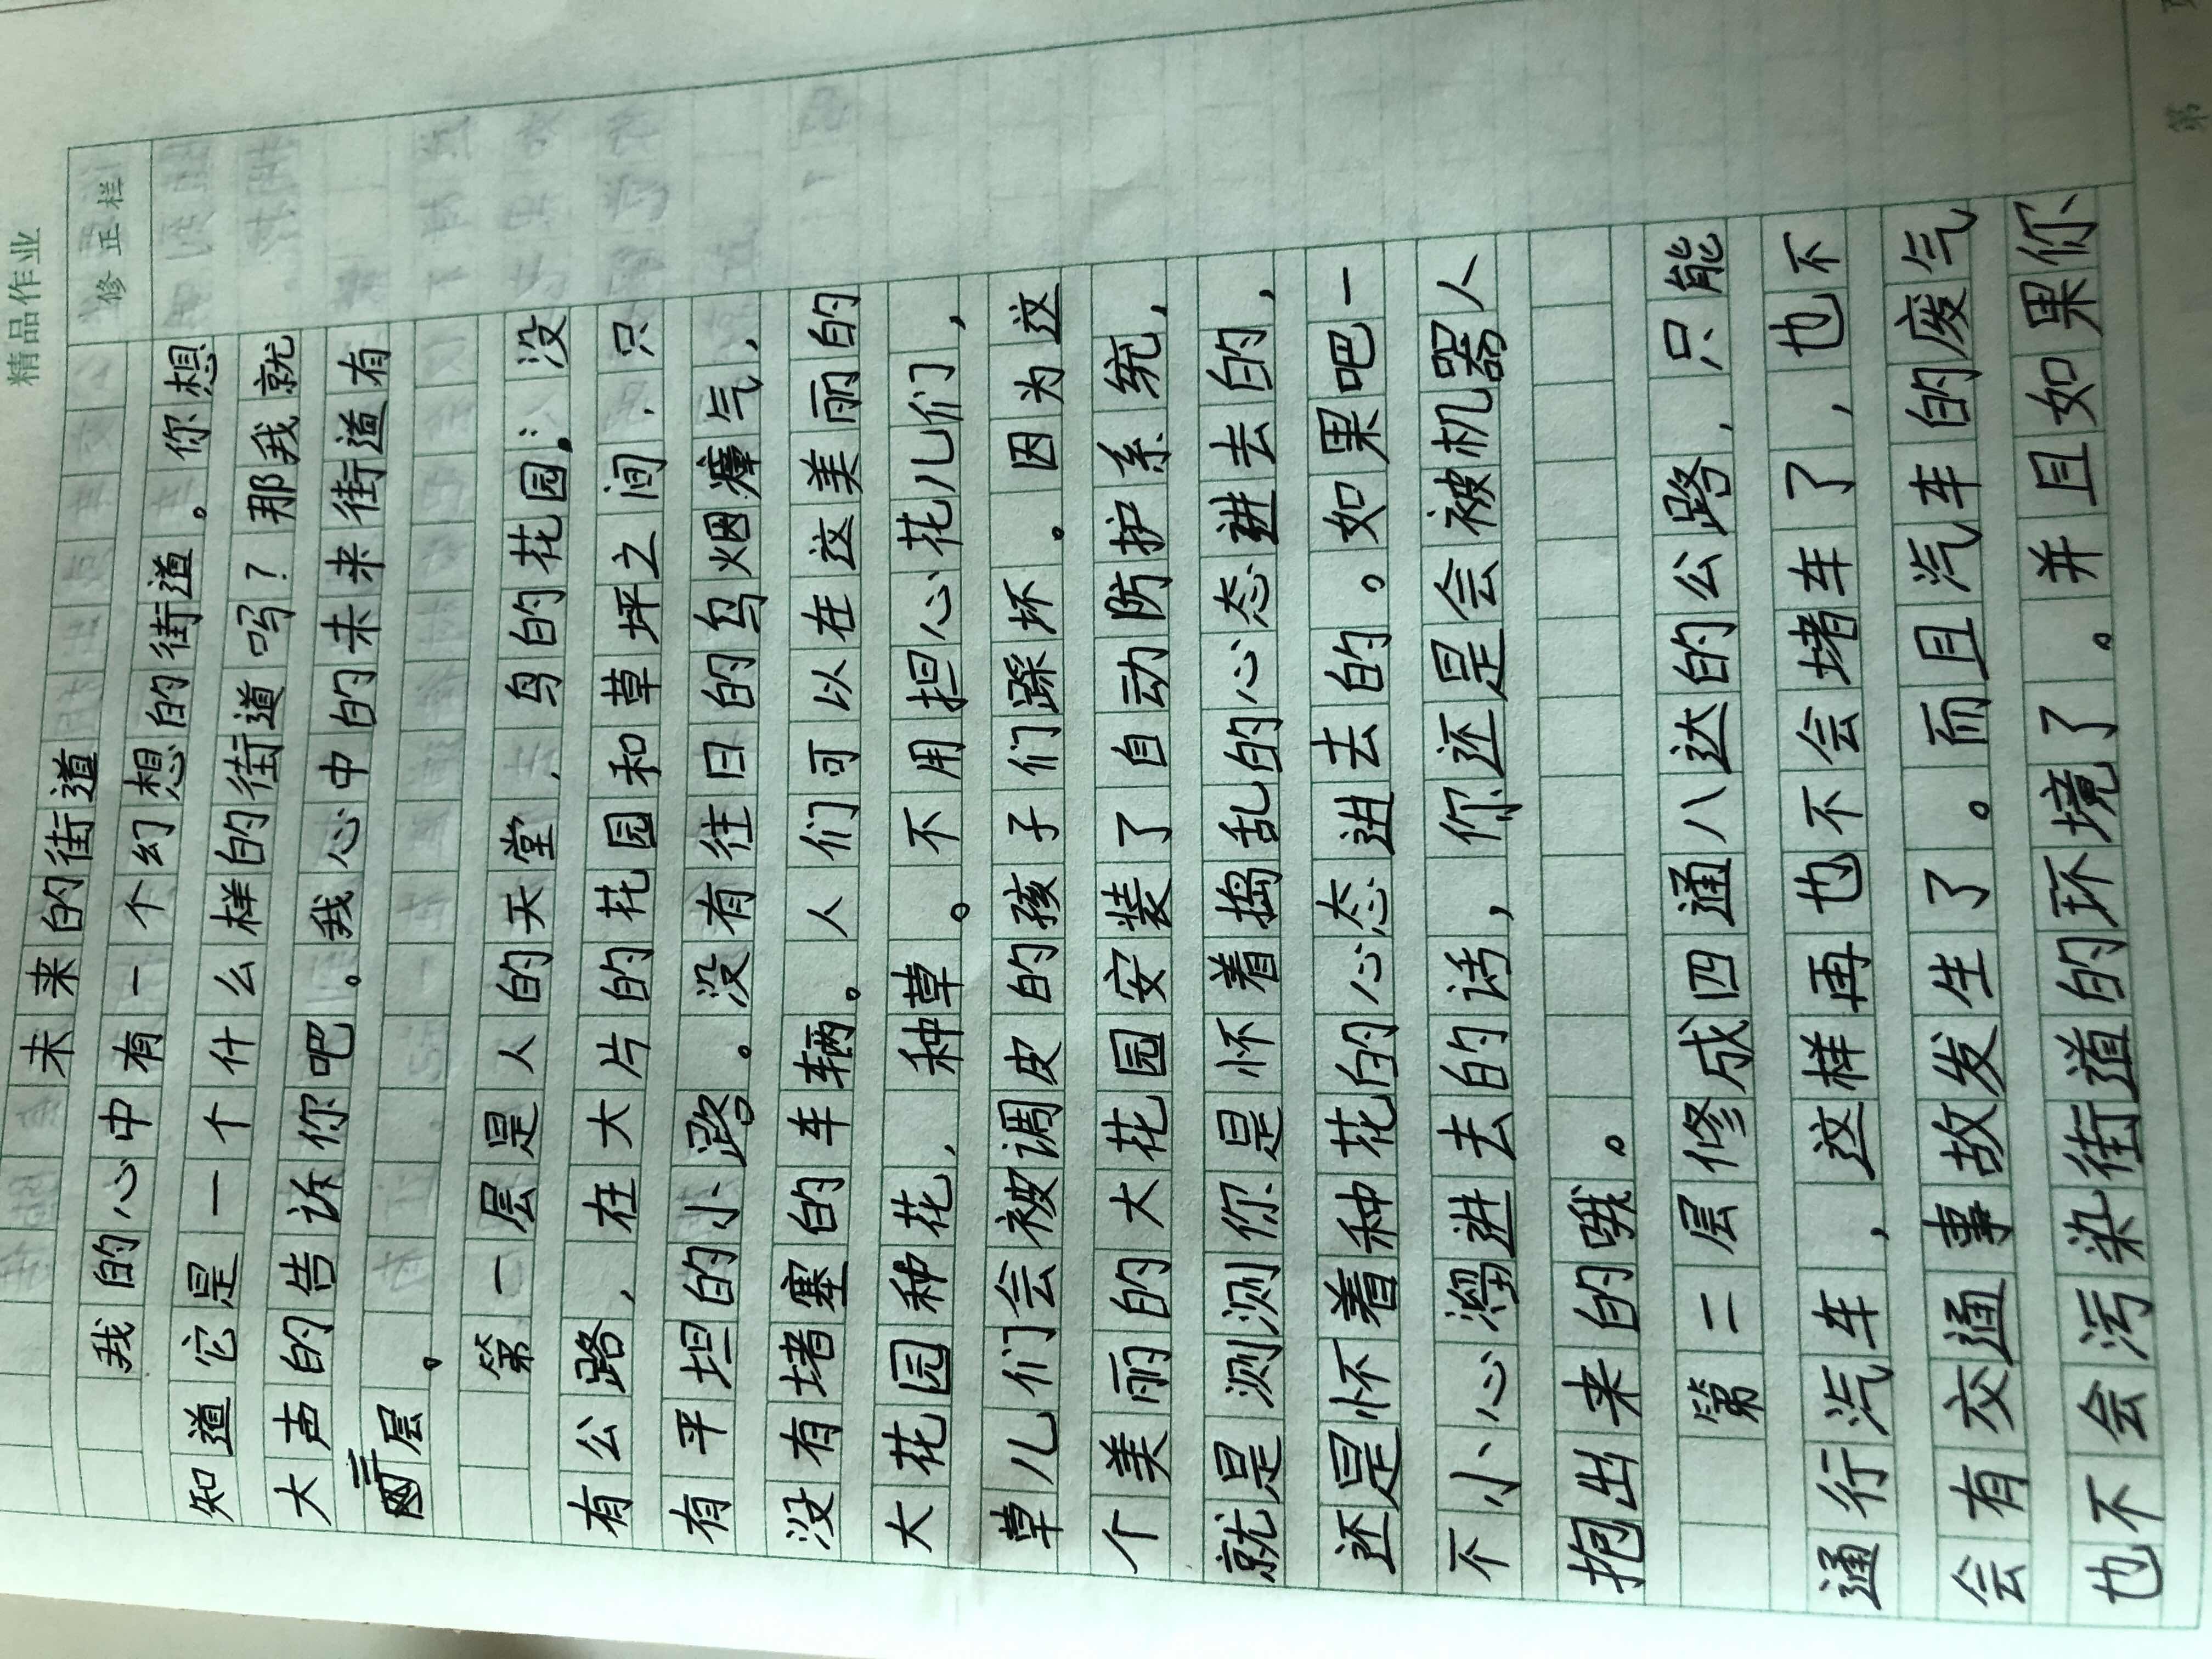 精品作业
修正栏
未来的街道
我的心中有一个幻想的街道。你想
知道它是一个什么样的街道吗？那我就
大声的告诉你吧。我心中的未来街道有
三层。
第一层是人的天堂，鸟的花园。没
有公路，在大片的花园和草坪之间，只
有平坦的小路。没有往日的乌烟瘴气，
没有堵塞的车辆。人们可以在这美丽的
大花园种花，种草。不用担心花儿们，
草儿们会被调皮的孩子们踩坏。因为这
个美丽的大花园安装了自动防护系统，
就是测测你是怀着捣乱的心态进去的，
还是怀着种花的心态进去的。如果吧一
不小心溜进去的话，你还是会被机器人
抱出来的哦。
第二层修成四通八达的公路，只能
通行汽车，这样再也不会堵车了，也不
会有交通事故发生了。而且汽车的废气
也不会污染街道的环境了。并且如果你
第